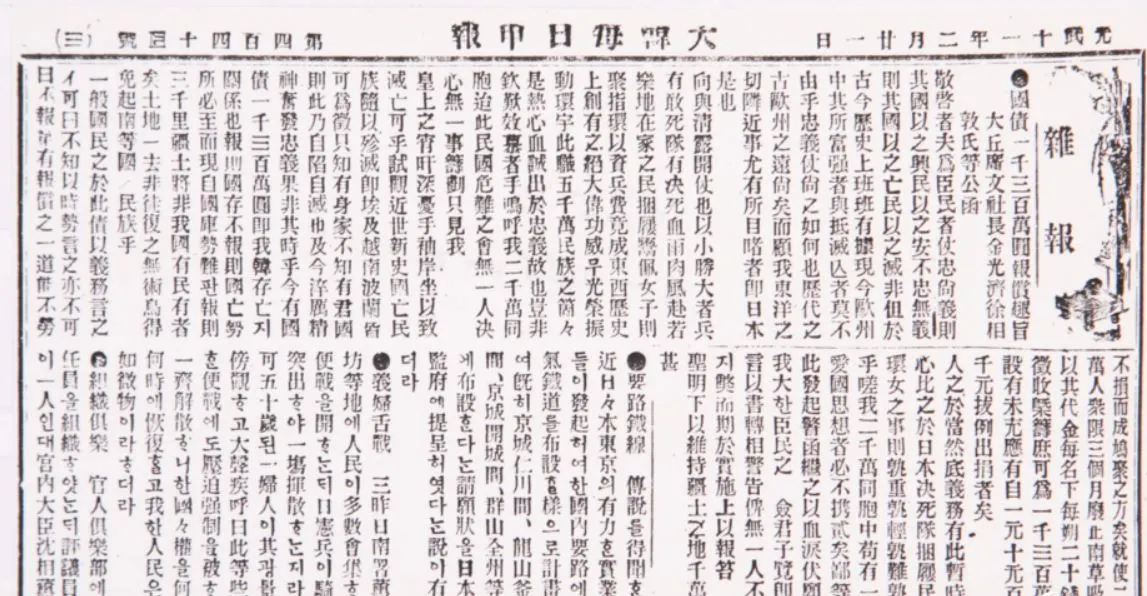 光武十一年二月廿一日
大韓每日申報
第四百四十三號
(三)
雜報
●國債一千三百萬圓報償趣旨
大丘廣文社長金光濟徐相
敦氏等公函
敬啓者夫爲臣民者仗忠尙義則
其國以之興民以之安不忠無義
則其國以之亡民以之滅非但於
古今歷史上班班有據現今歐州
中其所富强者與抵滅亾者莫不
由乎忠義仗尙之如何也歷代之
古歐州之遠尙矣而顧我東洋之
切隣近事尤有所目啫者卽日本
是也
向與淸露開仗也以小勝大者兵
有敢死隊有决死血雨肉風赴若
樂地在家之民捆屨鬻佩女子則
聚指環以資兵費竟成東西歷史
上創有之絕大偉功威무光榮振
動環宇此職五千萬民族之箇々
是熱心血誠出於忠義故也豈非
欽歎效慕者乎嗚呼我二千萬同
胞迨此民國危難之會無一人决
心無一事籌劃只見我
皇上之宵旰深憂手袖岸坐以致
滅亡可乎試觀近世新史國亡民
族隨以殄滅卽埃及越南波蘭皆
可爲徵只知有身家不知有君國
則此乃自陷自滅也及今淬厲精
神奮發忠義果非其時乎今有國
債一千三百萬圜卽我韓存亡지
關係也報則國存不報則國亡勢
所必至而現自國庫勢難판報則
三千里疆土將非我國有民有者
矣土地一去非徒復之無術烏得
免起南等國ノ民族乎
一般國民之於此債以義務言之
不可曰不知以時勢言之亦不可
曰不報並有報償之一道能不勞
不損而成鳩聚之方矣就使二
萬人衆限三個月廢止南草吸
以其代金每名下每朔二十錢
徵收槩籌庶可爲一千三百萬
設有未充應有自一元十元百
千元拔例出捐者矣
人之於當然底義務有此暫時
心比之於日本决死隊捆屨民
環女之事則孰重孰輕孰難孰
乎嗟我二千萬同胞中苟有一
愛國思想者必不携貳矣鄙等
此發起警函繼之以血淚伏願
我大한臣民之 僉君子覽卽
言以書轉相警告俾無一人不
지弊而期於實施上以報答
聖明下以維持疆土之地千萬
甚
●要路鐵線 傳說를得聞ᄒᆞ
近日々本東京의有力ᄒᆞᆫ實業
들이發起ᄒᆞ여한國內要路에
氣鐵道를布設ᄒᆞᆯ樣으로計畫
여旣히京城仁川間、龍山釜
間、京城開城間、群山全州等
에布設ᄒᆞᆫ다는請願狀을日本
監府에提呈허엿다는說이有
더라
●義婦舌戰 三昨日南署薰
坊等地에人民이多數會集ᄒᆞ
便戰을開ᄒᆞ는ᄃᆡ日憲兵이騎
突出ᄒᆞ야一塲揮散ᄒᆞ는지라
可五十歲된一婦人이其光景
傍觀ᄒᆞ고大聲疾呼曰此等些
ᄒᆞᆫ便戰에도壓迫强制을被ᄒᆞ
一齊解散ᄒᆞ니한國々權을何
何時에恢復ᄒᆞᆯ고我한人民은
如微物이라ᄒᆞ더라
●組織俱樂 官人俱樂部에
任員을組織ᄒᆞ얏는ᄃᆡ評議員
이一人인대宮內大臣沈相薰